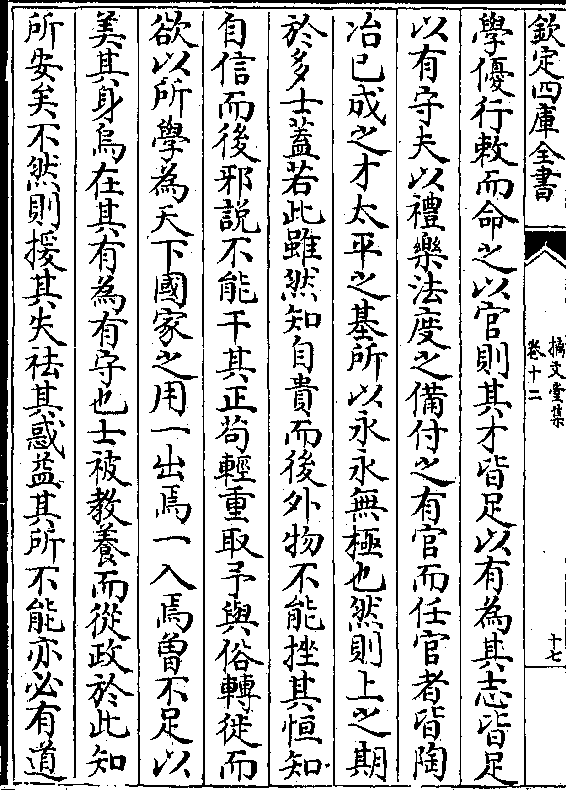 欽定四庫全書
摛文堂集
卷十二
十七
學優行敕而命之以官則其才皆足以有為其志皆足
以有守夫以禮樂法度之備付之有官而任官者皆陶
冶已成之才太平之基所以永永無極也然則上之期
於多士蓋若此雖然知自貴而後外物不能挫其恒知
自信而後邪說不能干其正苟輕重取予與俗轉徙而
欲以所學為天下國家之用一出焉一入焉曽不足以
美其身烏在其有為有守也士被教養而從政於此知
所安矣不然則援其失祛其惑益其所不能亦必有道